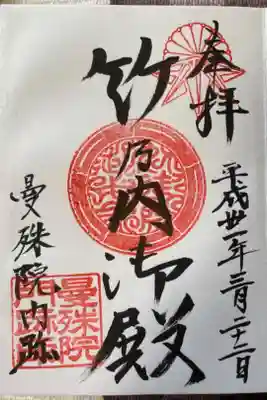 奉拝
平成卅一年三月二十二日
竹乃内御殿
曼殊院門跡
曼殊院